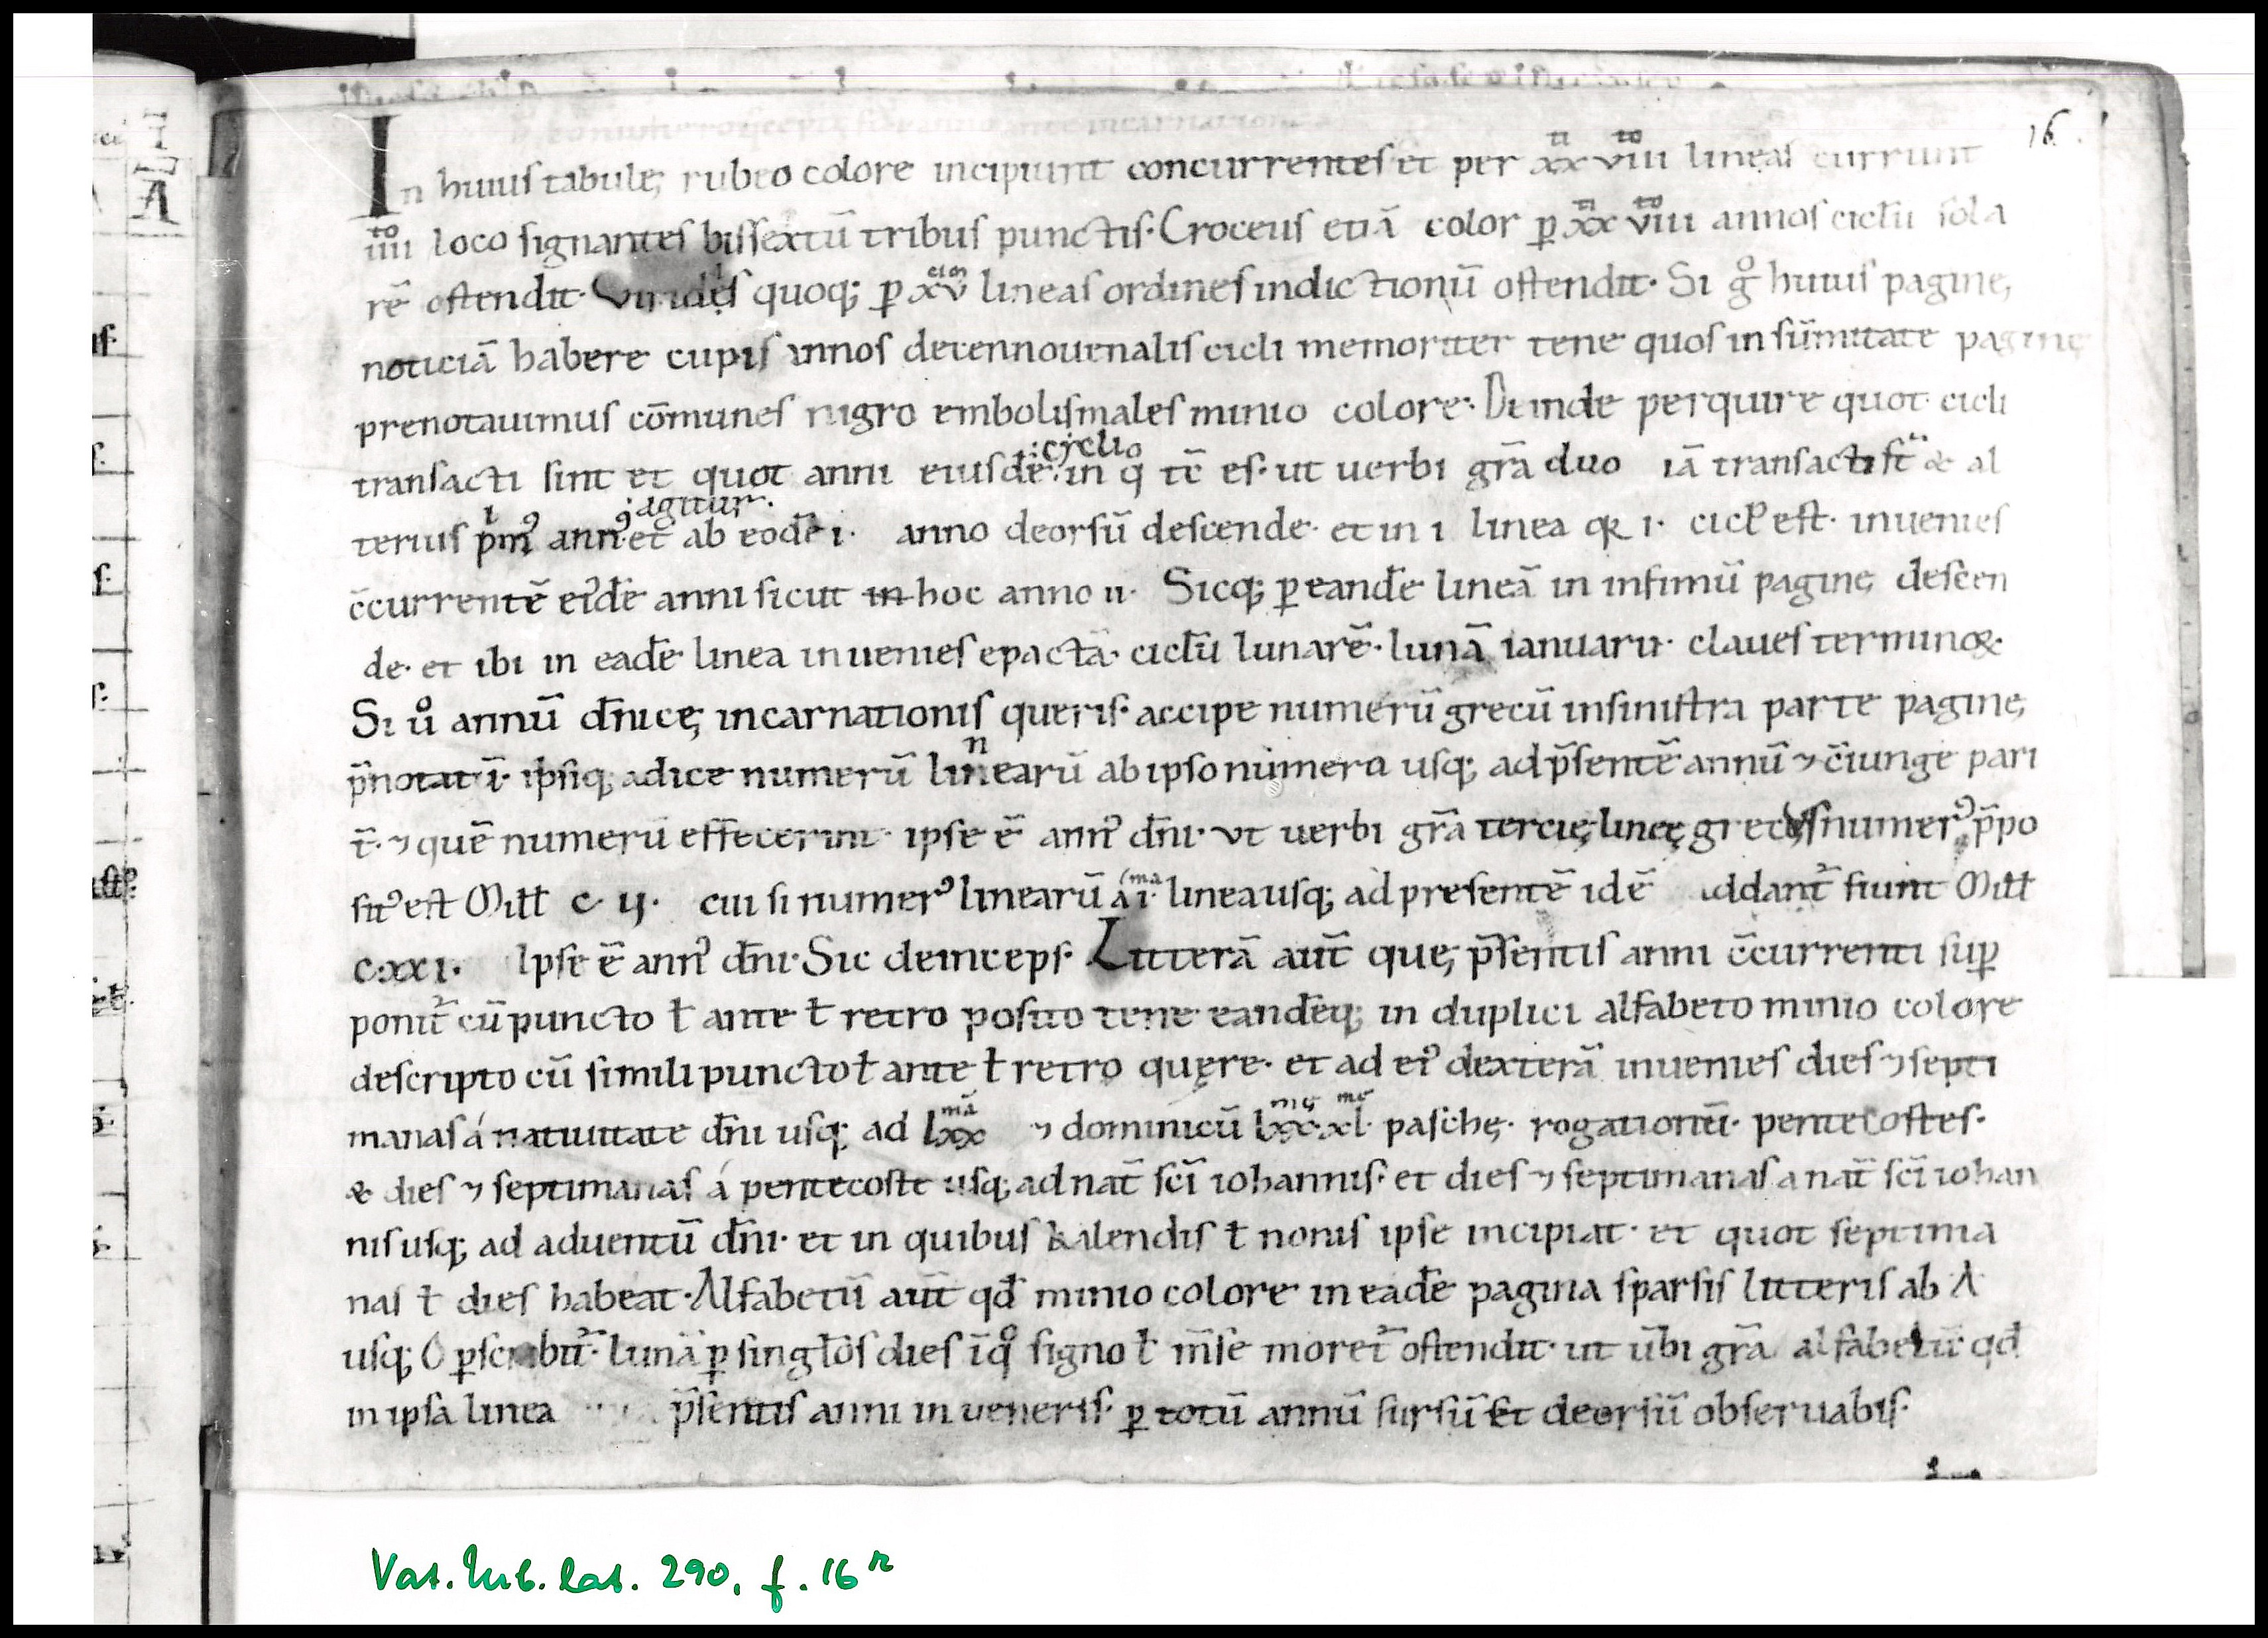 16
In huius tabulę rubeo colore incipiunt concurrentes et per xx^ti viii^to lineas currunt
iiii^to loco signantes bissextū tribus punctis. Croceus etiā color ꝑ xx^ti viii^to annos ciclū sola
rē ostendit. Viridis quoq; ꝑ xv^cim lineas ordines indictionū ostendit. Si g̊ huius paginę
noticiā habere cupis annos decennouenalis cicli memoriter tene quos in sūmitate paginę
prenotauimus cōmunes nigro embolismales minio colore. Deinde perquire quot cicli
transacti sint et quot anni eiusdē .i. cyclo in q̄ tē es. ut uerbi grā duo iā transacti st̄ & al
terius pm᷒ ann᷒ agitur. et ab eodē i. anno deorsū descende. et in i linea qꝛ i. cicl᷒ est. inuenies
c̄currentē ei᷒dē anni sicut in hoc anno ii. Sicq; ꝑ eandē lineā in infimū paginę descen
de. et ibi in eadē linea inuenies epactā. ciclū lunarē. lunā ianuarii. claues terminoꝝ.
Si ů annū dn̄icę incarnationis queris. accipe numerū grecū in sinistra parte paginę
p̄notatū. ipsiq; adice numerū linearū ab ipso numero usq; ad p̄sentē annū ⁊ c̄iunge pari
t̄. ⁊ quē numerū effecerint. ipse ē ann᷒ dn̄i. ut uerbi grā tercię linęę grecus numer᷒ p̄po
sit᷒ est Mill̄ c. ii. cui si numer᷒ linearū a i^ma linea usq; ad presentē idē addant᷑ fiunt Mill̄
c.xxi. Ipse ē ann᷒ dn̄i. Sic deinceps. Litterā aut̄ quę p̄sentis anni c̄currenti suꝑ
ponit᷑ cū puncto ł ante ł retro posito tene eandēq; in duplici alfabeto minio colore
descripto cū simili puncto ł ante ł retro quęre. et ad ei᷒ dexterā inuenies dies ⁊ septi
manas á natiuitate dn̄i usq; ad lxx^mā ⁊ dominicū lxx^mę xl^mę paschę. rogationū. pentecostes.
& dies ⁊ septimanas á pentecoste usq; ad nat̄ sc̄i iohannis. et dies ⁊ septimanas a nat̄ sc̄i iohan
nis usq; ad aduentū dn̄i. et in quibus kalendis ł nonis ipse incipiat. et quot septima
nas ł dies habeat. Alfabetū aut̄ qd̄ minio colore in eadē pagina sparsis litteris ab A
usq; O ꝑscribit᷑. lunā ꝑ singłos dies ī q̊ signo ł m̄se moret᷑ ostendit. ut ūbi grā alfabetū qd̄
in ipsa linea p̄sentis anni inueneris. ꝑ totū annū sursū et deorsū obseruabis.
Vat. Urb. lat. 290, f. 16^r